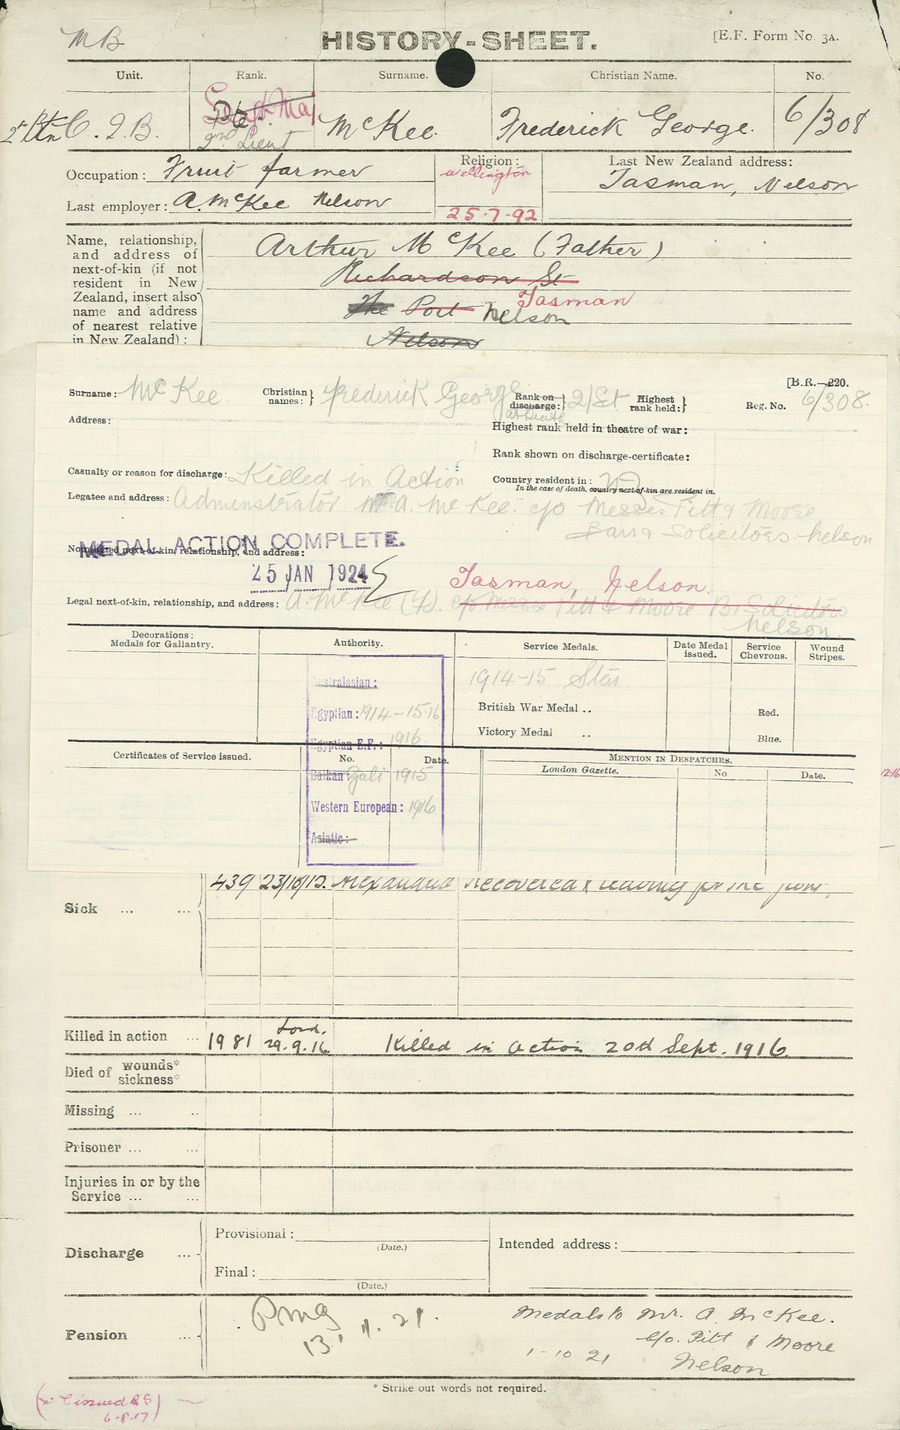 M B
HISTORY-SHEET.
[E.F. Form No. 3A.
Unit. Rank. Surname. Christian Name. No.
C. I. B. Pte. 2nd Lieut McKee. Frederick George. 6/308
Occupation: Fruit farmer
Religion:
Wellington
Last New Zealand address:
Tasman, Nelson
Last employer: A. McKee Nelson
25-7-92
Name, relationship, and address of next-of-kin (if not resident in New Zealand, insert also name and address of nearest relative in New Zealand):
Arthur McKee (Father)
Richardson St
The Port Nelson
Tasman
Nelson
[B.R.—220.
Surname: McKee Christian names: Frederick George Rank on discharge: 2/Lt Highest rank held: Reg. No. 6/308.
Address:
Highest rank held in theatre of war:
Rank shown on discharge-certificate:
Casualty or reason for discharge: Killed in Action
Country resident in:
In the case of death, country next-of-kin are resident in.
Legatee and address: Administrator Mr A. McKee c/o Messrs Pitt & Moore
Barrs Solicitors Nelson
Nominated next-of-kin, relationship, and address:
MEDAL ACTION COMPLETE.
25 JAN 1924
Tasman, Nelson.
Legal next-of-kin, relationship, and address: A. McKee (F). c/o Messrs Pitt & Moore B. Solicitors
Nelson
Decorations: Medals for Gallantry. Authority. Service Medals. Date Medal issued. Service Chevrons. Wound Stripes.
Australasian:
1914-15 Star
Egyptian: 1914-15-16
British War Medal ..
Red.
Egyptian E.F.: 1916
Victory Medal ..
Blue.
Certificates of Service issued. No. Date. MENTION IN DESPATCHES.
London Gazette. No Date.
Balkan: Gali 1915
Western European: 1916
Asiatic:
Sick ... ...
439 23/10/15. Alexandria Recovered & leaving for the front.
Killed in action ... 1981 Lond. 29.9.16 Killed in action 20th Sept. 1916
Died of wounds* sickness*
Missing ... ..
Prisoner ... ...
Injuries in or by the Service ... ...
Discharge ...
Provisional:
(Date.)
Intended address:
Final:
(Date.)
Pension ...
13 11. 21.
Medals to Mr. A. McKee.
c/o. Pitt & Moore
1-10 21 Nelson
* Strike out words not required.
6-8-17